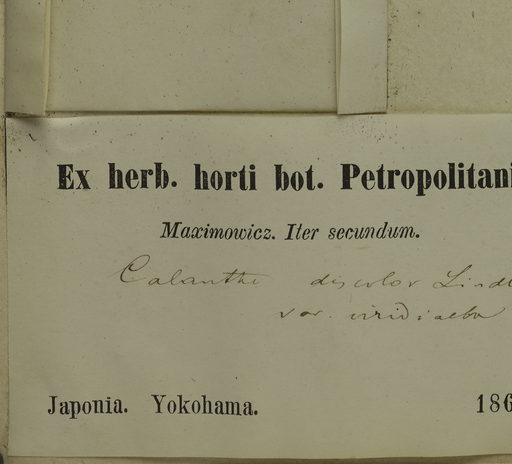 Ex herb. horti bot. Petropolitani
Maximowicz. Iter secundum.
Calanthe discolor Lindl
var. viridialba
Japonia. Yokohama. 186